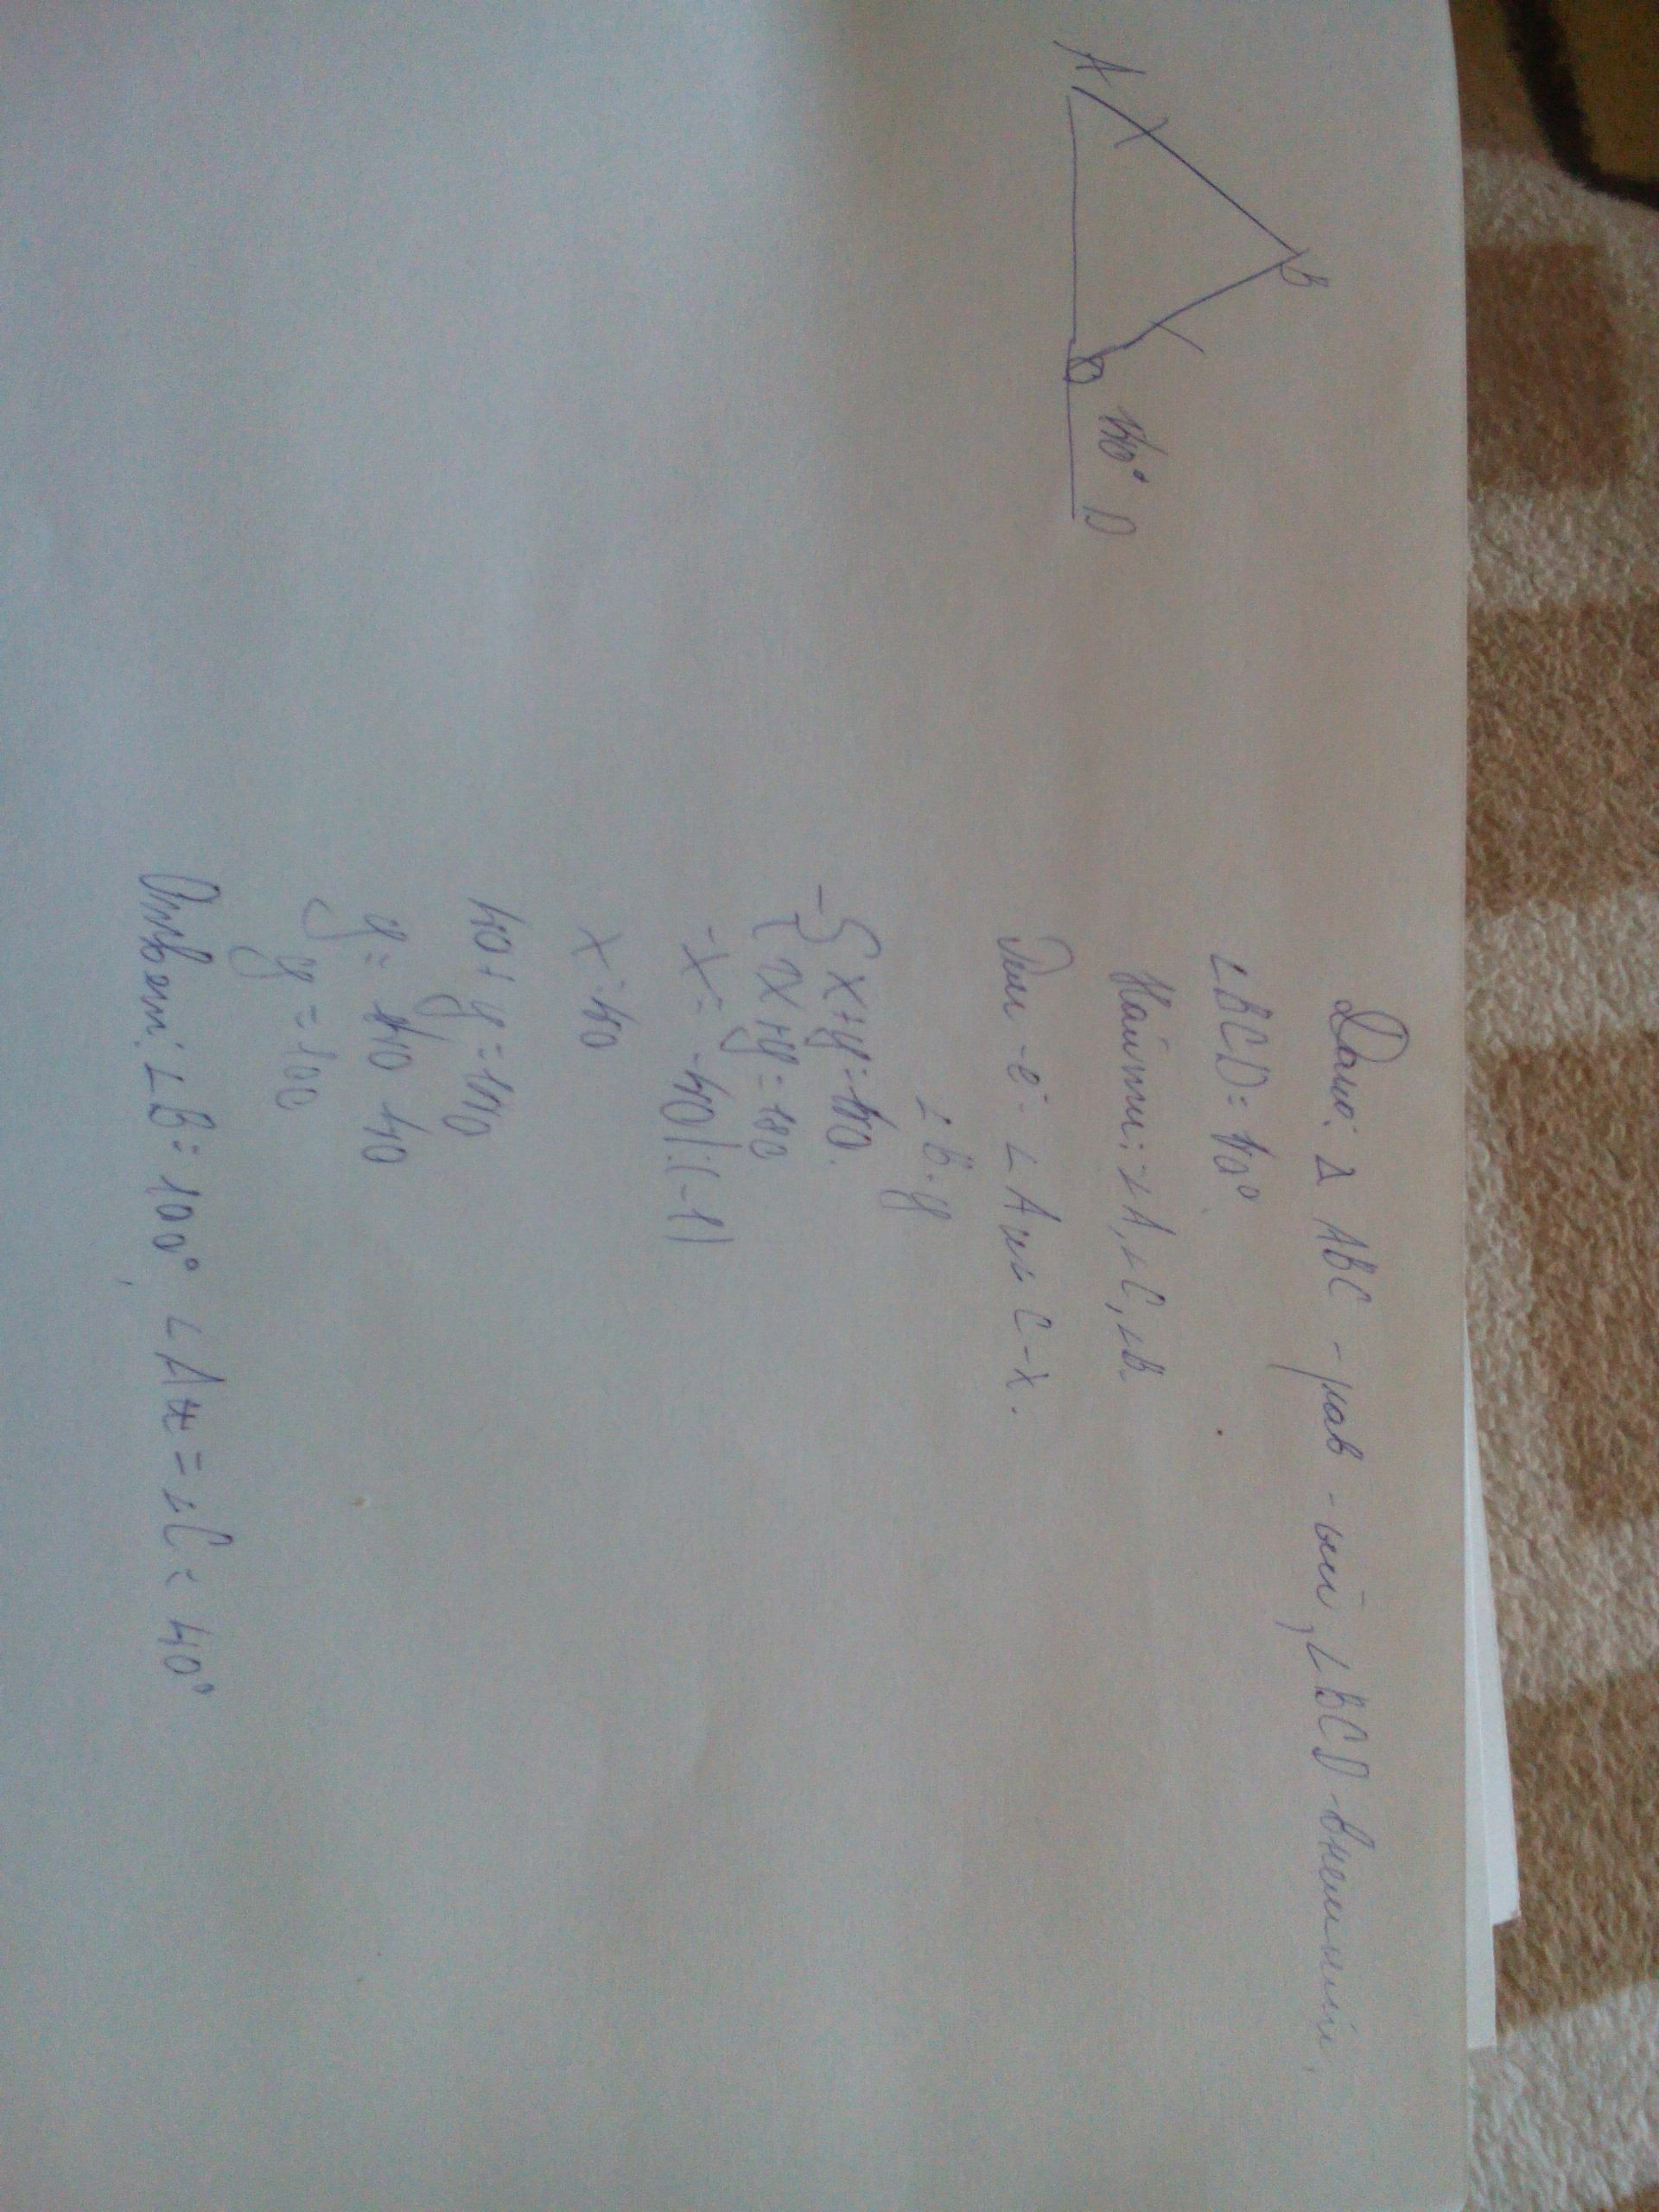 B
A
140° D
Дано: Δ ABC - рав - ый, ∠BCD - внешний,
∠BCD = 140°
Найти: ∠A, ∠C, ∠B.
∠A и ∠C - x.
∠B - y
x + y = 140
2x + y = 180
-x = -40 | :(-1)
x = 40
40 + y = 140
y = 140 40
y = 100
Ответ: ∠B = 100°, ∠A = ∠C = 40°